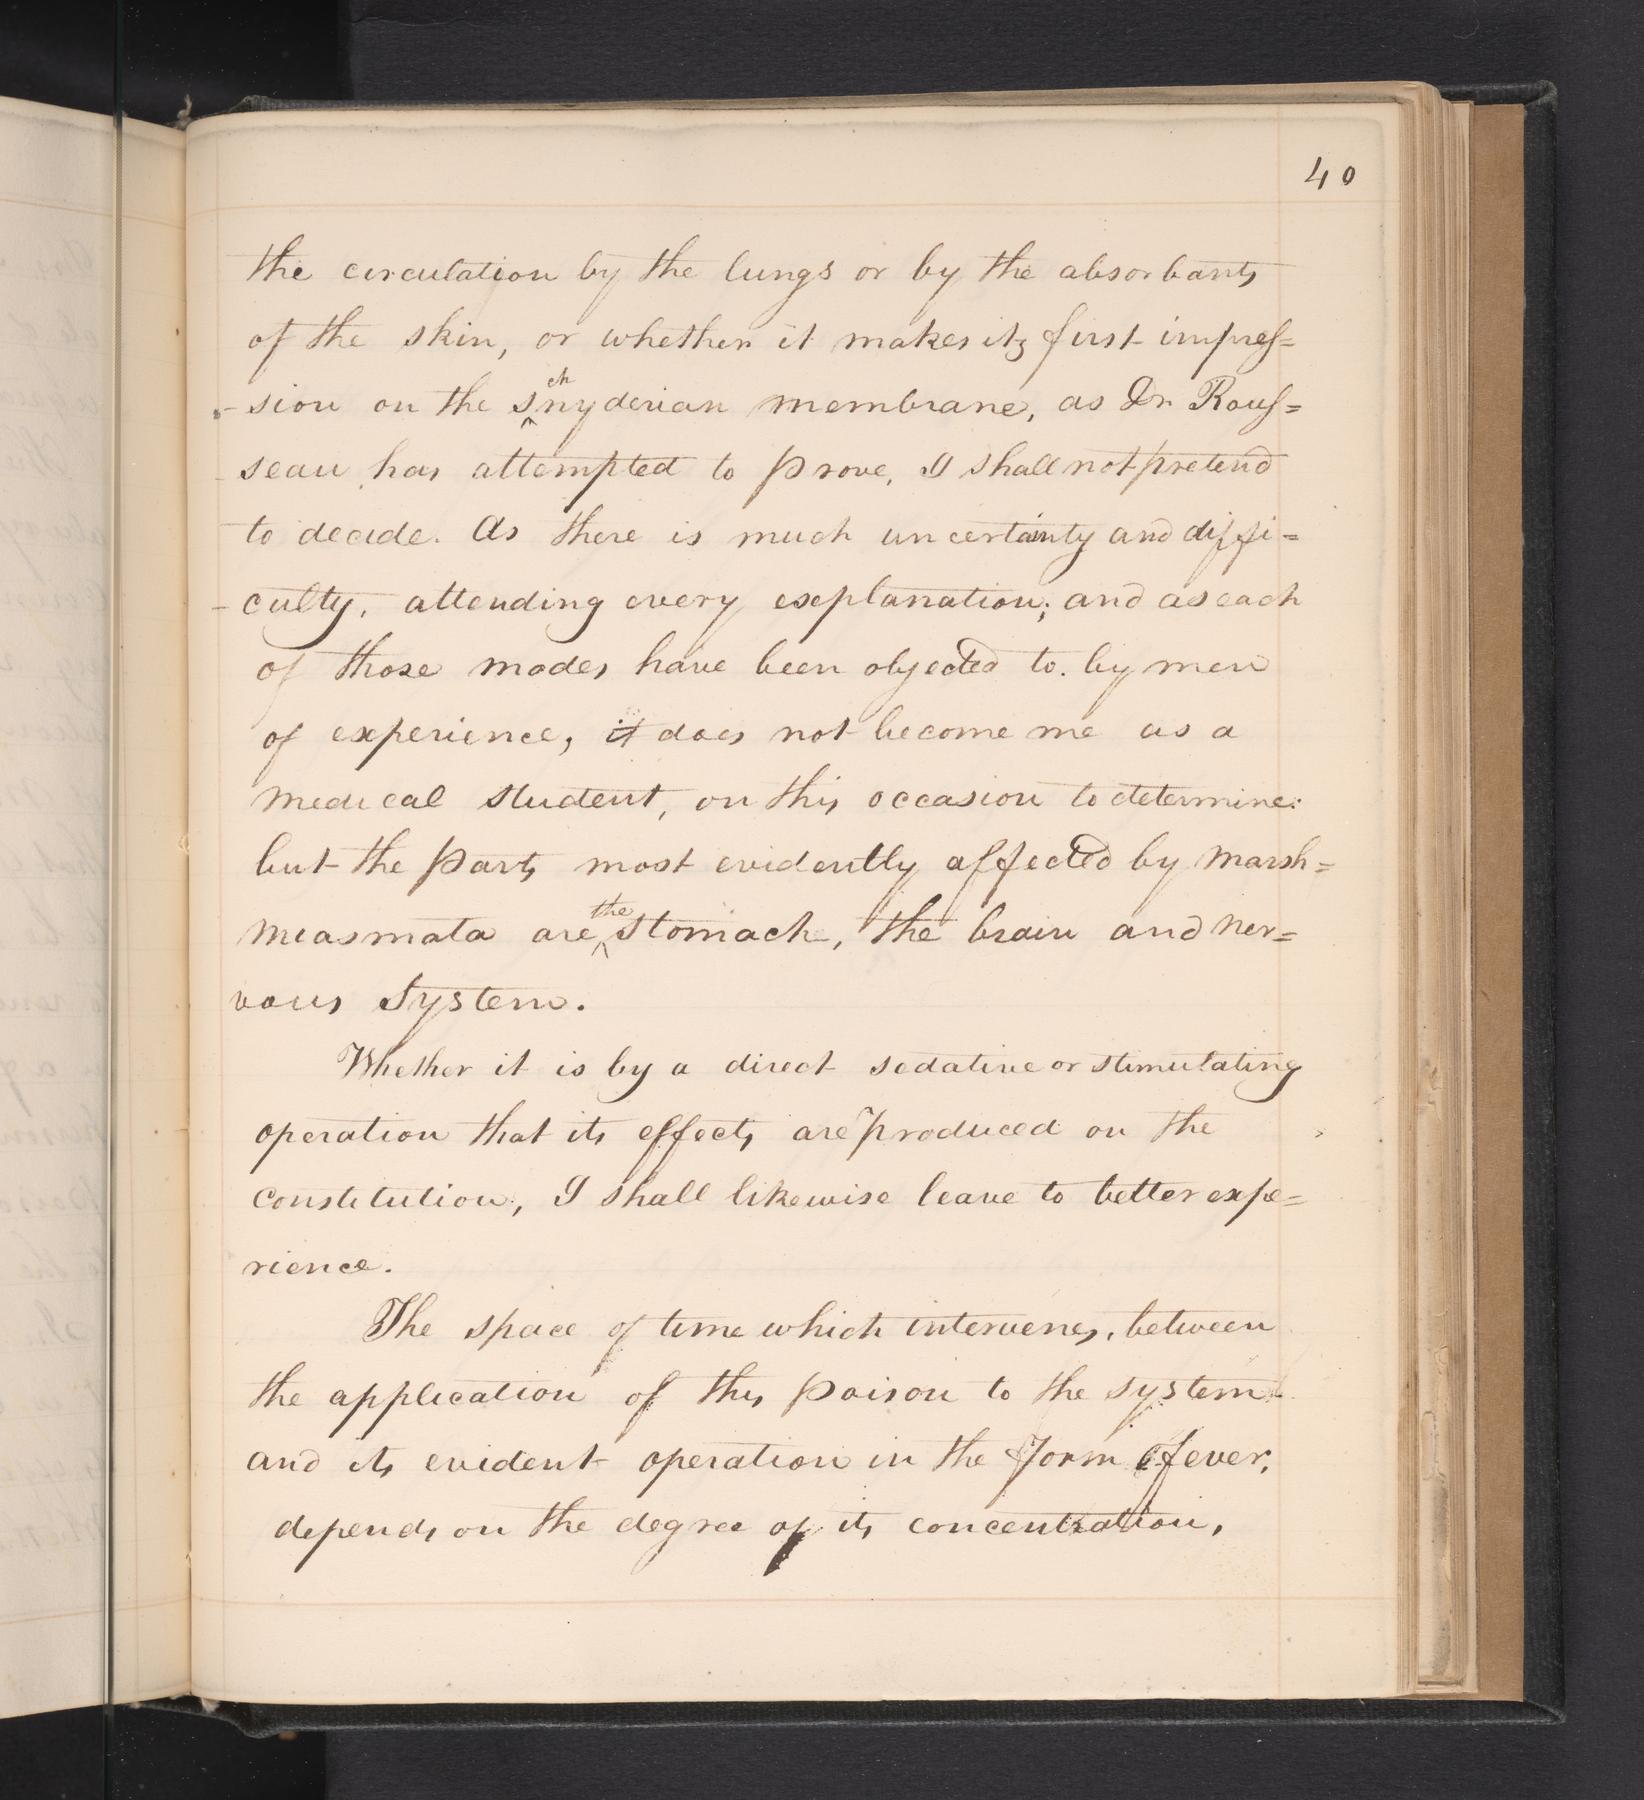 40
the circulation by the lungs or by the absorbants
of the skin, or whether it makes its first impres=
-sion on the schnyderian membrane, as Dr Rous=
seau has attempted to prove, I shall not pretend
to decide. As there is much uncertainty and diffi=
-culty, attending every explanation; and as each
of those modes have been objected to. by men
of experience, it does not become me as a
medical student, on this occasion to determine:
but the parts most evidently affected by Marsh=
measmata are the stomach, the brain and ner=
vous system.
Whether it is by a direct sedative or stimulating
operation that its effects are produced on the
constitution, I shall likewise leave to better expe=
rience.
The space of time which intervenes, between
the application of this poison to the system
and its evident operation in the Form of fever,
depends on the degree of its concentration,